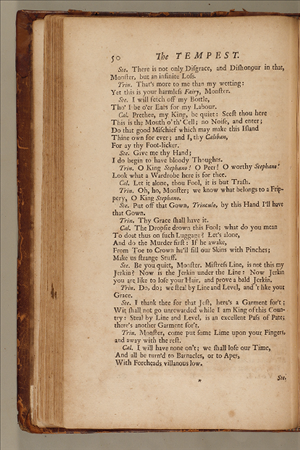 50 The TEMPEST.
Ste. There is not only Disgrace, and Dishonour in that,
Monster, but an infinite Loss.
Trin. That's more to me than my wetting:
Yet this is your harmless Fairy, Monster.
Ste. I will fetch off my Bottle,
Tho' I be o'er Ears for my Labour.
Cal. Prethee, my King, be quiet: Seest thou here
This is the Mouth o'th' Cell; no Noise, and enter;
Do that good Mischief which may make this Island
Thine own for ever; and I, thy Caliban,
For ay thy Foot-licker.
Ste. Give me thy Hand;
I do begin to have bloody Thoughts.
Trin. O King Stephano! O Peer! O worthy Stephano!
Look what a Wardrobe here is for thee.
Cal. Let it alone, thou Fool, it is but Trash.
Trin. Oh, ho, Monster; we know what belongs to a Frip-
pery, O King Stephano.
Ste. Put off that Gown, Trinculo, by this Hand I'll have
that Gown.
Trin. Thy Grace shall have it.
Cal. The Dropsie drown this Fool; what do you mean
To doat thus on such Luggage? Let's alone,
And do the Murder first: If he awake,
From Toe to Crown he'll fill our Skins with Pinches;
Make us strange Stuff.
Ste. Be you quiet, Monster. Mistress Line, is not this my
Jerkin? Now is the Jerkin under the Line: Now Jerkin
you are like to lose your Hair, and prove a bald Jerkin.
Trin. Do, do; we steal by Line and Level, and 't like your
Grace.
Ste. I thank thee for that Jest, here's a Garment for't;
Wit shall not go unrewarded while I am King of this Coun-
try: Steal by Line and Level, is an excellent Pass of Pate;
there's another Garment for't.
Trin. Monster, come put some Lime upon your Fingers,
and away with the rest.
Cal. I will have none on't; we shall lose our Time,
And all be turn'd to Barnacles, or to Apes,
With Foreheads villanous low.
Ste.